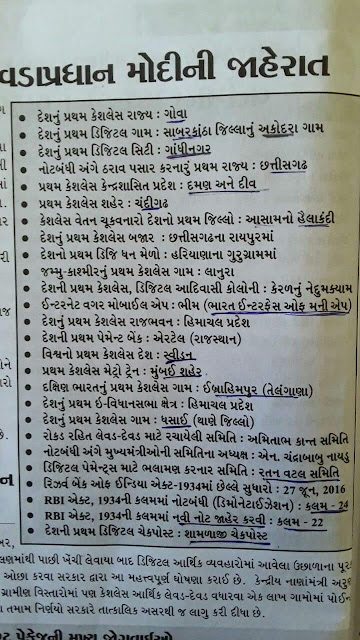 વડાપ્રધાન મોદીની જાહેરાત
• દેશનું પ્રથમ કેશલેસ રાજ્ય : ગોવા
• દેશનું પ્રથમ ડિજિટલ ગામ : સાબરકાંઠા જિલ્લાનું અકોદરા ગામ
• દેશનું પ્રથમ ડિજિટલ સિટી : ગાંધીનગર
• નોટબંધી અંગે ઠરાવ પસાર કરનારું પ્રથમ રાજ્ય : છત્તીસગઢ
• પ્રથમ કેશલેસ કેન્દ્રશાસિત પ્રદેશ : દમણ અને દીવ
• પ્રથમ કેશલેસ શહેર : ચંદીગઢ
• કેશલેસ વેતન ચૂકવનારો દેશનો પ્રથમ જિલ્લો : આસામનો હૈલાકંદી
• દેશનું પ્રથમ કેશલેસ બજાર : છત્તીસગઢના રાયપુરમાં
• દેશનો પ્રથમ ડિજિ ધન મેળો : હરિયાણાના ગુરુગ્રામમાં
• જમ્મુ-કાશ્મીરનું પ્રથમ કેશલેસ ગામ : લાનુરા
• દેશની પ્રથમ કેશલેસ, ડિજિટલ આદિવાસી કોલોની : કેરળનું નેદુમકયામ
• ઈન્ટરનેટ વગર મોબાઈલ એપ : ભીમ (ભારત ઈન્ટરફેસ ઓફ મની એપ)
• દેશનું પ્રથમ કેશલેસ રાજભવન : હિમાચલ પ્રદેશ
• દેશની પ્રથમ પેમેન્ટ બેંક : એરટેલ (રાજસ્થાન)
• વિશ્વનો પ્રથમ કેશલેસ દેશ : સ્વીડન
• પ્રથમ કેશલેસ મેટ્રો ટ્રેન : મુંબઈ શહેર
• દક્ષિણ ભારતનું પ્રથમ કેશલેસ ગામ : ઈબ્રાહિમપુર (તેલંગાણા)
• દેશનું પ્રથમ ઈ-વિધાનસભા ક્ષેત્ર : હિમાચલ પ્રદેશ
• દેશનું પ્રથમ કેશલેસ ગામ : ધસાઈ (થાણે જિલ્લો)
• રોકડ રહિત લેવડ-દેવડ માટે રચાયેલી સમિતિ : અમિતાભ કાન્ત સમિતિ
• નોટબંધી અંગે મુખ્યમંત્રીઓની સમિતિના અધ્યક્ષ : એન. ચંદ્રાબાબુ નાયડુ
• ડિજિટલ પેમેન્ટ્સ માટે ભલામણ કરનાર સમિતિ : રતન વટલ સમિતિ
• રિઝર્વ બેંક ઓફ ઈન્ડિયા એક્ટ-1934માં છેલ્લે સુધારો : 27 જૂન, 2016
• RBI એક્ટ, 1934ની કલમમાં નોટબંધી (ડિમોનેટાઈઝેશન) : કલમ - 24
• RBI એક્ટ, 1934ની કલમમાં નવી નોટ જાહેર કરવી : કલમ - 22
• દેશની પ્રથમ ડિજિટલ ચેકપોસ્ટ : શામળાજી ચેકપોસ્ટ
લણમાંથી પાછી ખેંચી લેવાયા બાદ ડિજિટલ આર્થિક વ્યવહારોમાં આવેલા ઉછાળાના
ઓછા કરવા સરકાર દ્વારા આ મહત્ત્વપૂર્ણ ઘોષણા કરાઈ છે. કેન્દ્રીય નાણાંમંત્રી
ગ્રામીણ વિસ્તારોમાં પણ કેશલેસ આર્થિક લેવડ-દેવડ વધારવા એક લાખ ગામોમાં
તમામ નિર્ણયો સરકારે તાત્કાલિક અસરથી જ લાગુ કરી દીધા છે.